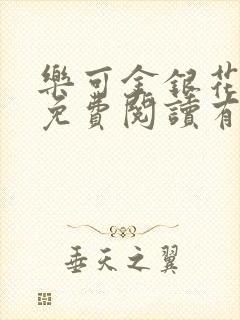 樂可金銀花
免費閱讀有
垂天之翼